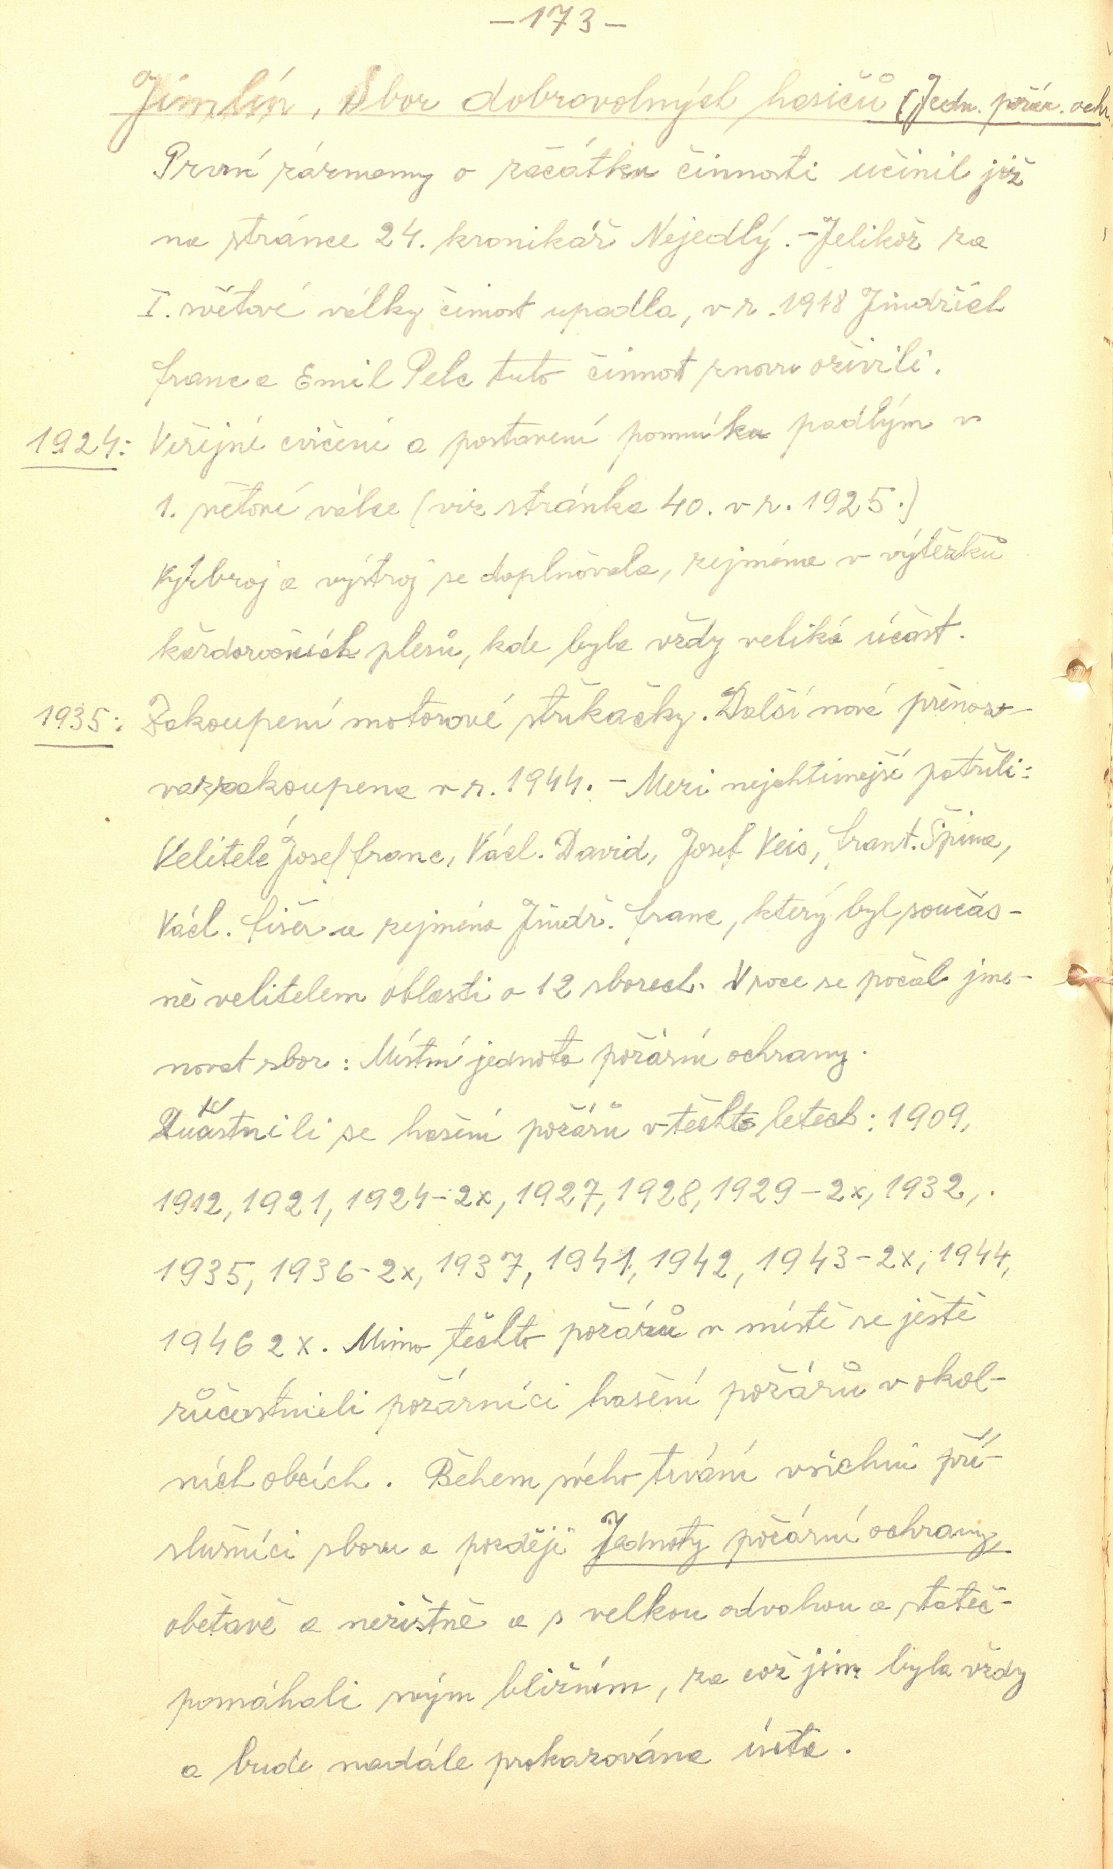 - 173 -
Jimlín, Sbor dobrovolných hasičů (Jedn. požár. ochr.
První záznamy o začátku činnosti učinil již
na stránce 24. kronikář Nejedlý. - Jelikož za
I. světové války činost upadla, v r. 1918 Jindřich
Franc a Emil Pelc tuto činnost znovu oživili.
1924: Veřejné cvičení a postavení pomníku padlým v
1. světové válce (viz stránka 40. v r. 1925.)
Výzbroj a výstroj se doplňovala, zejména v výtěžků
každoročních plesů, kde byla vždy veliká účast.
1935: Zakoupení motorové stříkačky. Další nová přenos-
va zakoupena v r. 1944. - Mezi nejahtivnejší patřili:
Velitelé Josef Franc, Václ. David, Josef Veis, Frant. Špina,
Václ. Fišer a zejména Jindř. Franc, který byl součas-
ně velitelem oblasti o 12 sborech. V roce se počal jme-
novat sbor: Místní jednota požární ochrany.
Zučastnili se hašení požárů v těchto letech: 1909,
1912, 1921, 1924 - 2x, 1927, 1928, 1929 - 2x, 1932,.
1935, 1936 - 2x, 1937, 1941, 1942, 1943 - 2x, 1944,
1946 2x. Mimo těchto požárů v místě se ještě
zůčastnili požárníci hašení požárů v okol-
ních obcích. Během svého trvání všichni pří-
slušníci sboru a později Jednoty požární ochrany,
obětavě a nezištně a s velkou odvahou a stateč-
pomáhali svým bližním, za což jim byla vždy
a bude nadále prokazována úcta.